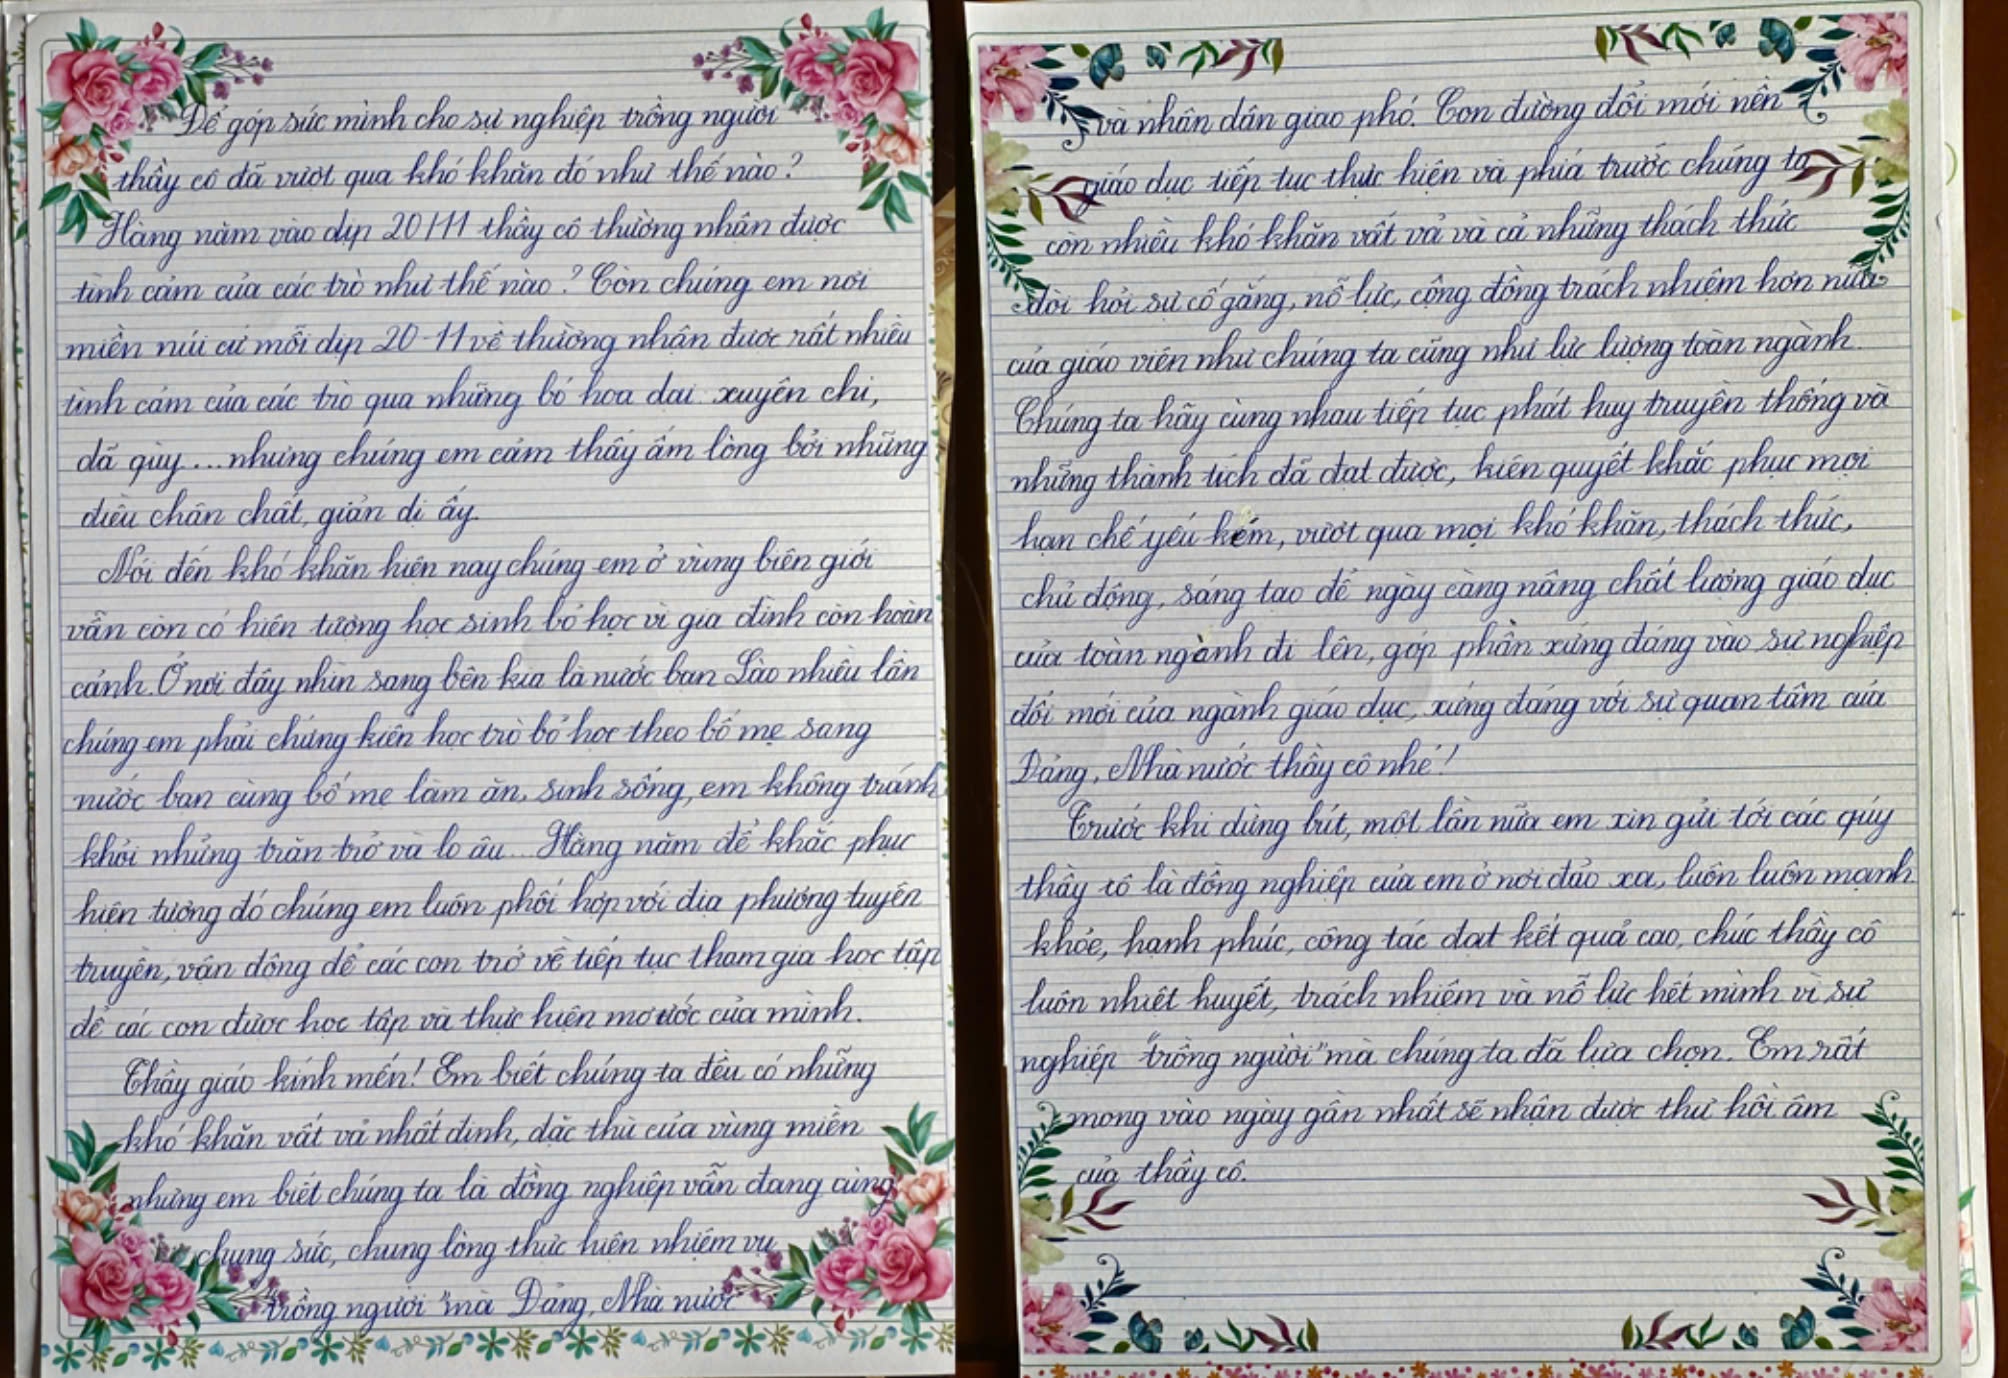 Để góp sức mình cho sự nghiệp trồng người
thầy cô đã vượt qua khó khăn đó như thế nào?
Hàng năm vào dịp 20/11 thầy cô thường nhận được
tình cảm của các trò như thế nào? Còn chúng em nơi
miền núi cứ mỗi dịp 20-11 về thường nhận được rất nhiều
tình cảm của các trò qua những bó hoa dại xuyến chi,
dã quỳ...nhưng chúng em cảm thấy ấm lòng bởi những
điều chân chất, giản dị ấy.
Nói đến khó khăn hiện nay chúng em ở vùng biên giới
vẫn còn có hiện tượng học sinh bỏ học vì gia đình còn hoàn
cảnh. Ở nơi đây nhìn sang bên kia là nước bạn Lào nhiều lần
chúng em phải chứng kiến học trò bỏ học theo bố mẹ sang
nước bạn cùng bố mẹ làm ăn, sinh sống, em không tránh
khỏi những trăn trở và lo âu... Hàng năm để khắc phục
hiện tượng đó chúng em luôn phối hợp với địa phương tuyên
truyền, vận động để các con trở về tiếp tục tham gia học tập
để các con được học tập và thực hiện mơ ước của mình.
Thầy giáo kính mến! Em biết chúng ta đều có những
khó khăn vất vả nhất định, đặc thù của vùng miền
nhưng em biết chúng ta là đồng nghiệp vẫn đang cùng
chung sức, chung lòng thực hiện nhiệm vụ
"trồng người" mà Đảng, Nhà nước
và nhân dân giao phó. Con đường đổi mới nền
giáo dục tiếp tục thực hiện và phía trước chúng ta
còn nhiều khó khăn vất vả và cả những thách thức
đòi hỏi sự cố gắng, nỗ lực, cộng đồng trách nhiệm hơn nữa
của giáo viên như chúng ta cũng như lực lượng toàn ngành.
Chúng ta hãy cùng nhau tiếp tục phát huy truyền thống và
những thành tích đã đạt được, kiên quyết khắc phục mọi
hạn chế yếu kém, vượt qua mọi khó khăn, thách thức,
chủ động, sáng tạo để ngày càng nâng chất lượng giáo dục
của toàn ngành đi lên, góp phần xứng đáng vào sự nghiệp
đổi mới của ngành giáo dục, xứng đáng với sự quan tâm của
Đảng, Nhà nước thầy cô nhé!
Trước khi dừng bút, một lần nữa em xin gửi tới các quý
thầy cô là đồng nghiệp của em ở nơi đảo xa, luôn luôn mạnh
khỏe, hạnh phúc, công tác đạt kết quả cao, chúc thầy cô
luôn nhiệt huyết, trách nhiệm và nỗ lực hết mình vì sự
nghiệp "trồng người" mà chúng ta đã lựa chọn. Em rất
mong vào ngày gần nhất sẽ nhận được thư hồi âm
của thầy cô.